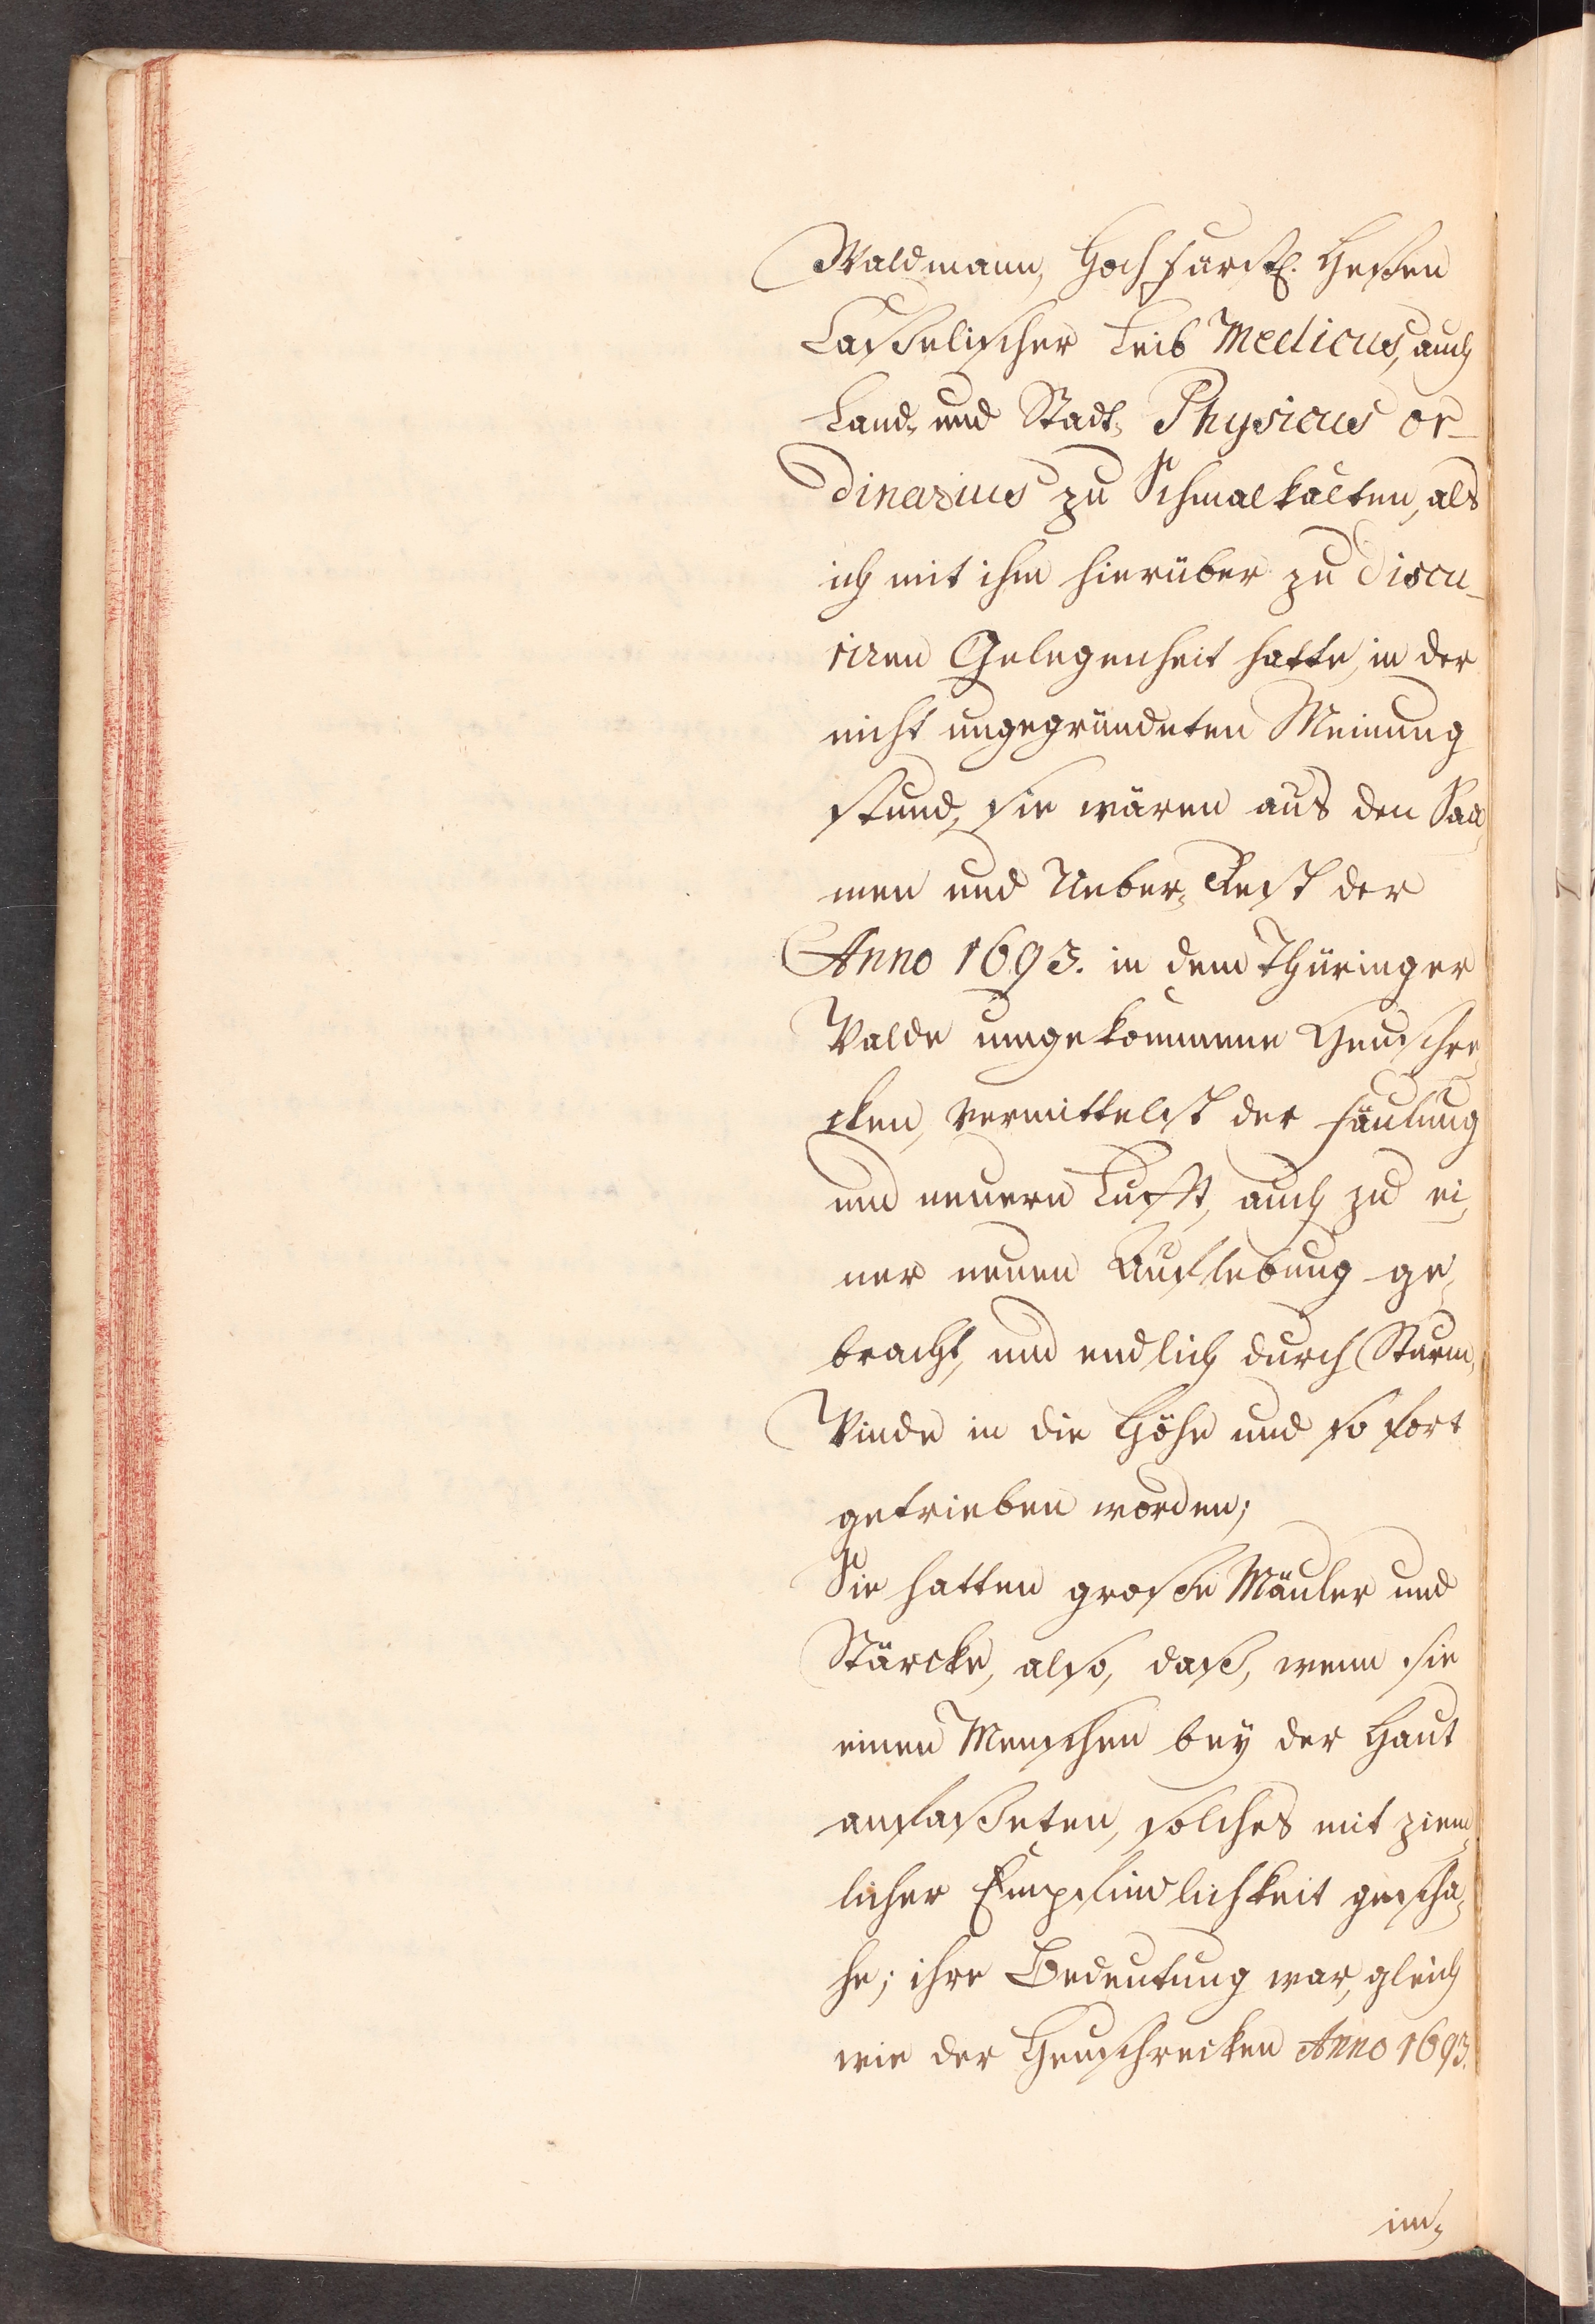 Waldmann, Hochfürstl. Heßen
Caßelischer Leib Medicus, auch
Land- und Stadt- Physicus or-
dinarius zu Schmalkalten, als
ich mit ihm hierüber zu discu-
riren Gelegenheit hatte, in der
nicht ungegründeten Meinung
stund, sie wären aus den Saa-
men und Ueber-Rest der
Anno 1693. in dem Thüringer
Walde umgekommene Heuschre-
cken, vermittelst der Fäulung
und neuern Lufft, auch zu ei-
ner neuen Auflebung ge-
bracht, und endlich durch Sturm-
Winde in die Höhe und so fort
getrieben worden;
Sie hatten große Mäuler und
Stärcke, also, daß, wenn sie
einen Menschen bey der Haut
anfaßeten, solches mit ziem-
licher Empfindlichkeit gescha-
he; ihre Bedeutung war, gleich
wie der Heuschrecken Anno 1693.
im-